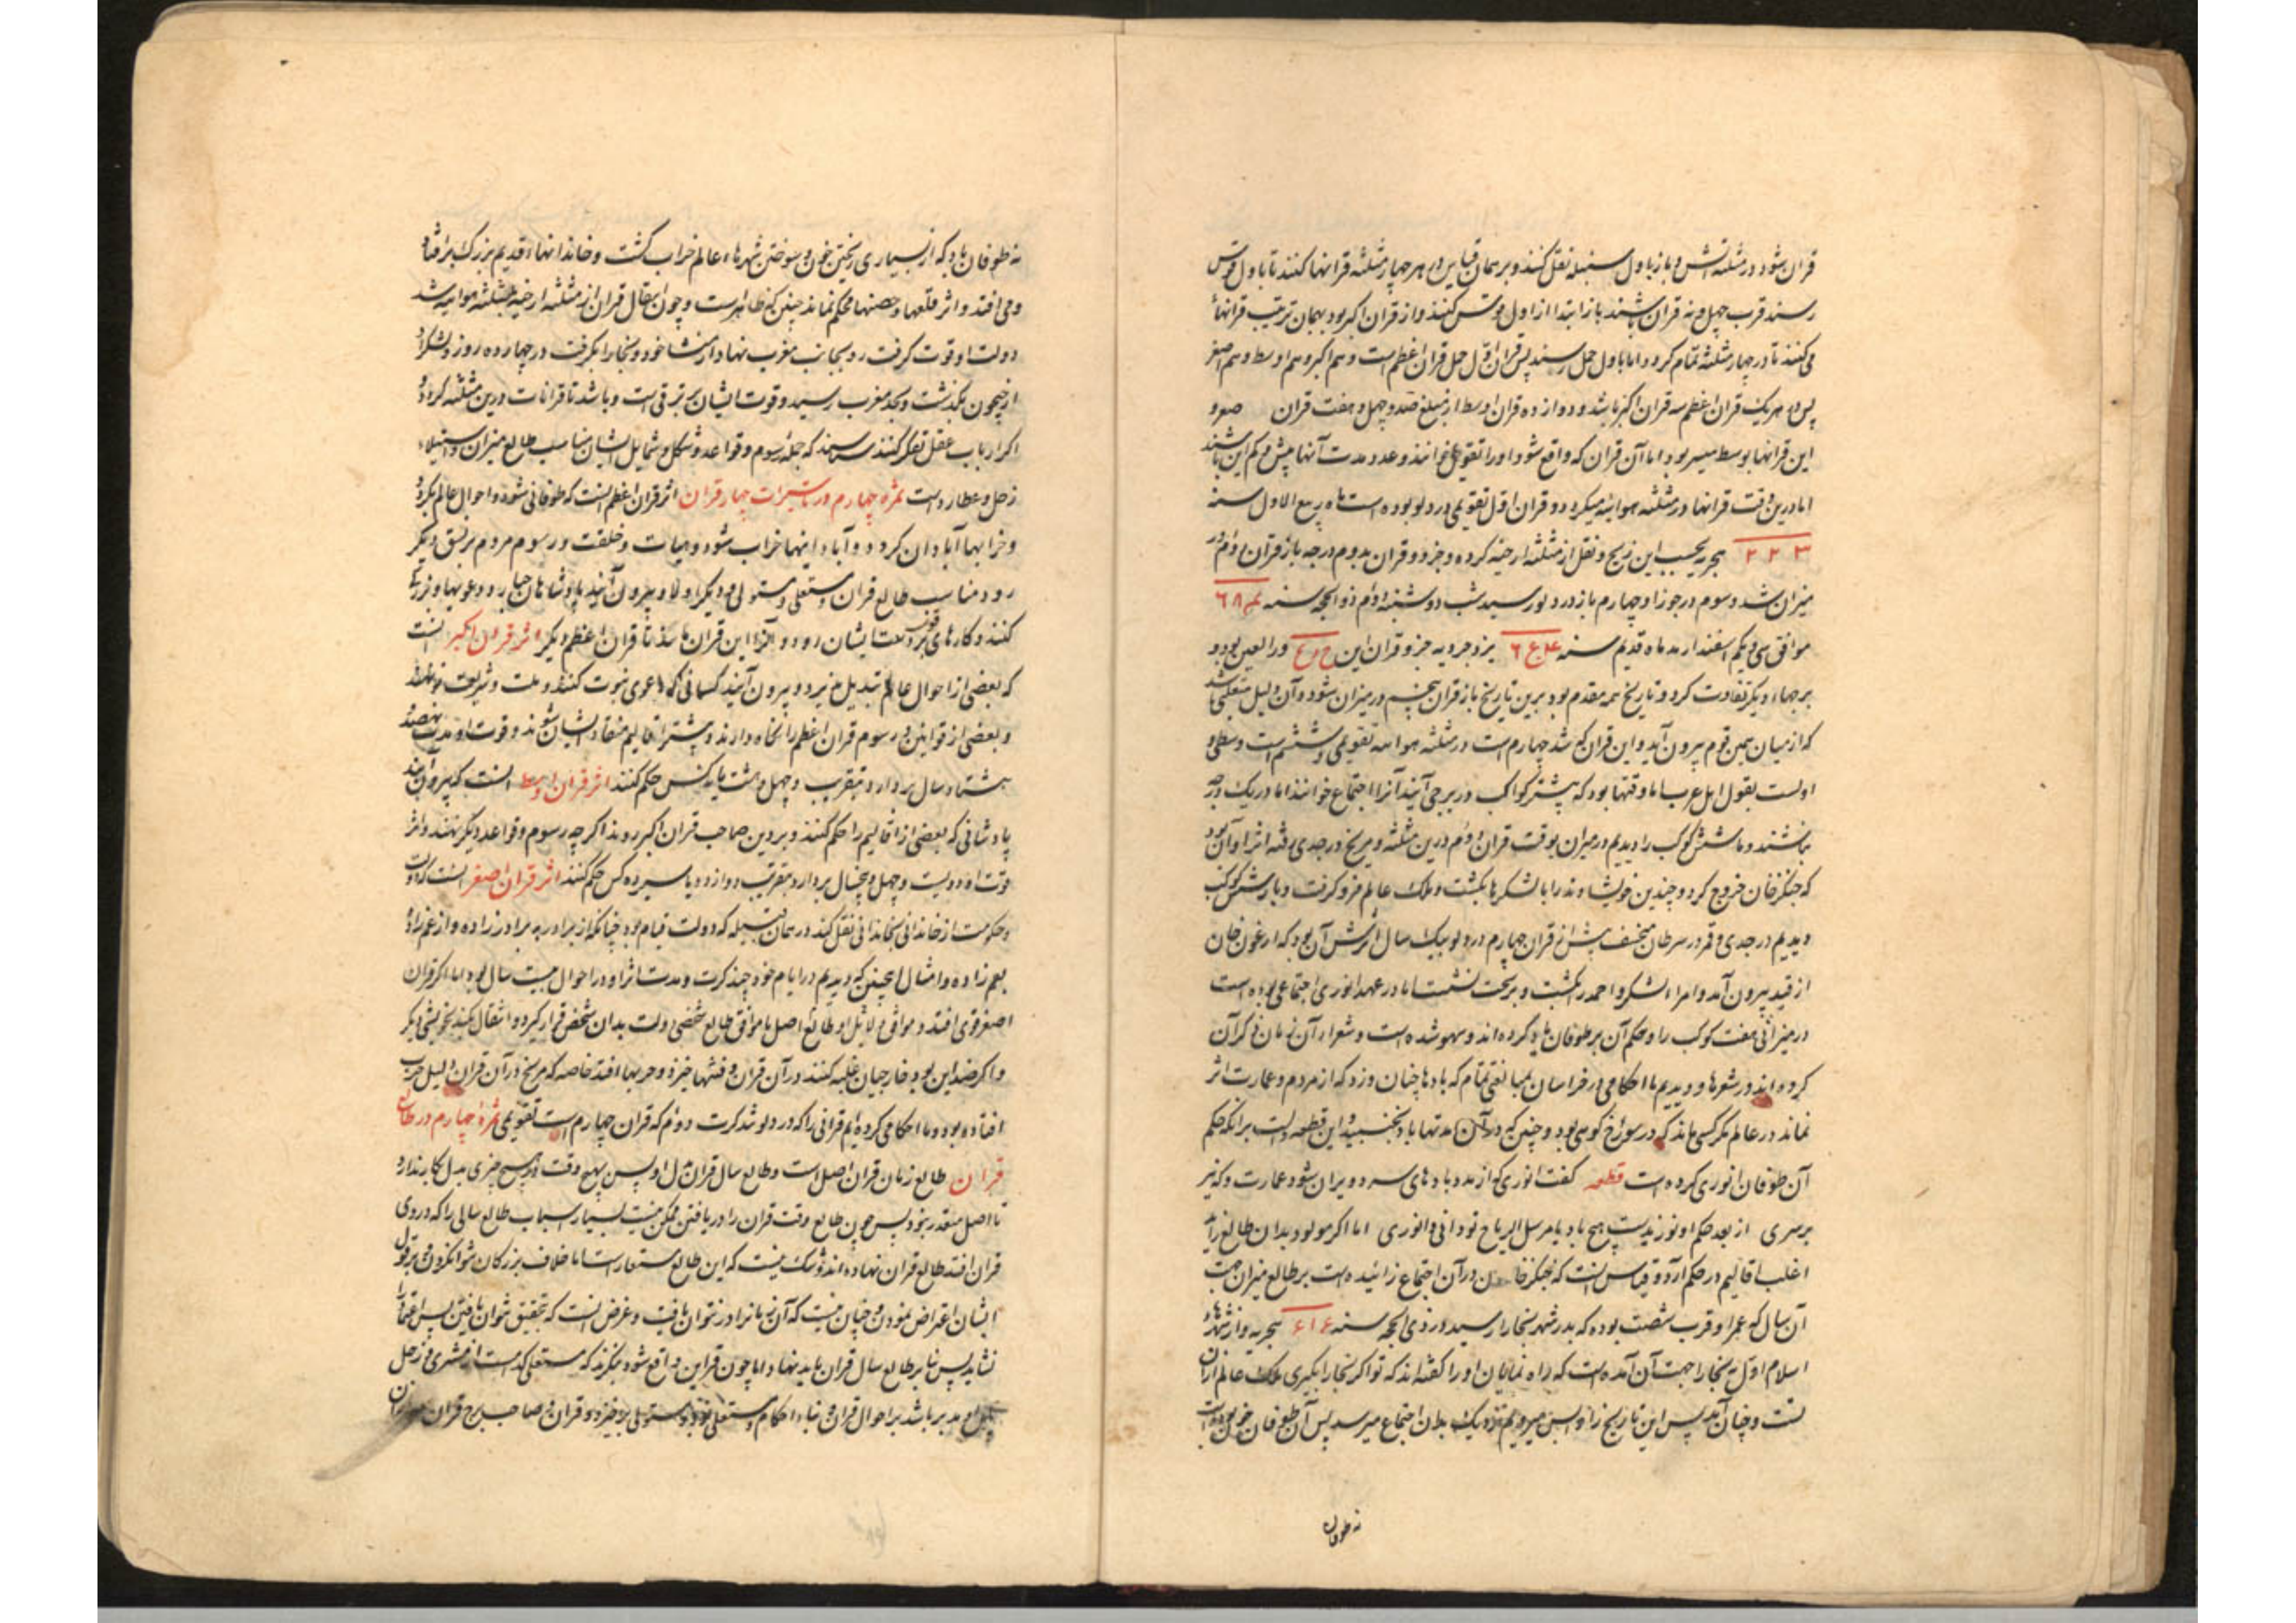 قران شود در مثلثه آتش و باز باول سنبله نقل کنند و بر همان قیاس در هر چهار مثلثه قرانها کنند تا باول قوس
رسند قرب چهل و نه قران باشند باز ابتدا از اول قوس کنند و از قران اکبر بود بهمان ترتیب قرانها
می کنند تا در چهار مثلثه تمام گردد اما باول حمل رسند پس قران اول حمل قران اعظم است و هم اکبر و هم اوسط و هم اصغر
پس در هر یک قران اعظم سه قران اکبر باشد و دوازده قران اوسط از مبلغ صد و چهل و هفت قران
این قرانها بوسط میسر بود اما آن قران که واقع شود او را تقویمی خوانند و عدد مدت آنها بیش و کم این باشند
اما درین وقت قرانها در مثلثه هوائیه میگردد و قران اول تقویمی در دلو بوده است ماه ربیع الاول سنه
هجریه بحسب این زیج و نقل از مثلثه ارضیه کرده و جزو قران بدوم درجه باز قران دوم در
میزان شد و سوم در جوزا و چهارم باز در دلو رسید شب دوشنبه دوم ذو الحجه سنه
موافق سی و یکم اسفندارمد ماه قدیم سنه یزدجردیه جزو قران این
برجهاء دیگر تفاوت کرد و تاریخ همه مقدم بود برین تاریخ باز قران پنجم در میزان شود و آن دلیل متغلبی باشد
که از میان همین قوم بیرون آید و این قران که شد چهارم است در مثلثه هوائیه تقویمی و ششم است وسطی و
اولست بقول اهل عرب اما وقتها بود که بیشتر کواکب در برجی آیند آنرا اجتماع خوانند اما در یک درجه
نباشند و ما شش کوکب را دیدیم در میزان بوقت قران دوم درین مثلثه و مریخ در جدی رفته اثر او آن بود
که چنگزخان خروج کرد و چندین خویشاوند را با لشکرها بکشت و ملک عالم فرو گرفت و باز شش کوکب
دیدیم در جدی و قمر در سرطان منخسف پیش از قران چهارم در دلو بیک سال اثرش آن بود که ارغون خان
از قید بیرون آمد و امراء لشکر و احمد را بکشت و بر تخت نشست اما در عهد انوری اجتماعی بوده است
در میزان هفت کوکب را و حکم آن بر طوفان باد کرده اند و سهو شده است و شعراء آن زمان ذکر آن
کرده اند در شعرها و دیدیم ما احکامی در خراسان بمبالغتی تمام که بادها چنان وزد که از مردم و عمارت اثر
نماند در عالم مگر کسی ماند که در سوراخ کوهی بود و چنین که در آن مدتها باد نجنبید و این قطعه دالست برانکه حکم
آن طوفان انوری کرده است قطعه گفت انوری که از مدد بادهای سرد ویران شود عمارت و که نیز
بر سری از بعد حکم او نوزیدست هیچ باد یا مرسل الریاح تو دانی و انوری اما اگر مولود بدان طالع زاید
اغلب اقالیم در حکم آرد و قیاس آنست که چنگزخان در آن اجتماع زائیده است بر طالع میزان جهت
آن سال که عمر او قرب شصت بوده که بدر شهر بخارا رسید در ذی الحجه سنه ۶۱۶ هجریه و از شهرهاء
اسلام اول به بخارا جهت آن آمده است که راه نمایان او را گفته اند که تو اگر بخارا بگیری ملک عالم از آن
تست و چنان آمد پس این تاریخ را واپس میرویم نزدیک بدان اجتماع میرسد پس آن طوفان خون بوده است
نه طوفان
نه طوفان باد که از بسیاری ریختن خون و سوختن شهرهاء عالم خراب گشت و خاندانهاء قدیم بزرگ برافتاد
و می افتد و اثر قلعها و حصنها محکم نماند چنین که ظاهرست و چون انتقال قران از مثلثه ارضیه بمثلثه هوائیه شد
دولت او قوت گرفت رو بجانب مغرب نهاد از منشا خود و بخارا بگرفت در چهارده روز و لشکر او
از جیحون بگذشت و بحد مغرب رسید و قوت ایشان بر ترقی است و باشد تا قرانات درین مثلثه گردد و
اگر ارباب عقل تفکر کنند شناسند که جمله رسوم و قواعد و شکل و شمایل ایشان مناسب طالع میزان و استیلاء
زحل و عطاردست ثمره چهارم در تاثیرات چهار قران اثر قران اعظم آنست که طوفانی شود و احوال عالم بگردد
و خرابیها آبادان گردد و آبادانیها خراب شود و هیات و خلقت و رسوم مردم بر نسق دیگر
رود مناسب طالع قران و مستعلی و مستولی و دیگر اولاد بیرون آیند پادشاهان جبار و دعویها بزرگ
کنند و کارهای بزرگ قوت ایشان رود و آنرا این قران ها شد تا قران اعظم دیگر اثر قران اکبر آنست
که بعضی از احوال عالم تبدیل پذیرد و بیرون آیند کسانی که دعوی نبوت کنند و ملت و شریعت نو نهند
و بعضی از قوانین و رسوم قران اعظم را نگاه دارند و بیشتر اقالیم منقاد ایشان شوند و قوت او مدت نهصد و
هشتاد سال بردارد بتقریب و چهل و هشت پادشا کس حکم کنند اثر قران اوسط آنست که بیرون آیند
پادشاهانی که بعضی از اقالیم را حکم کنند و بر دین صاحب قران اکبر روند اگر چه رسوم و قواعد دیگر نهند و اثر
قوت او دویست و چهل و پنجسال بردارد بتقریب دوازده یا سیزده کس حکم کنند اثر قران اصغر آنست که دولت
و حکومت از خاندانی بخاندانی نقل کند در همان قبیله که دولت قیام بود چنانکه از برادر به برادرزاده و از عم زاده
بعم زاده و امثال اینچنین که دیدیم در ایام خود چند کرت و مدت اثر او در احوال بیست سال بود اما اگر قران
اصغر قوی افتد و موافق دلائل او طالع اصل یا موافق طالع شخصی دولت بدان شخص قرار گیرد و انتقال نکند بخویشی دیگر
و اگر ضد این بود خارجیان غلبه کنند در آن قران و فتنها خیزد و حربها افتد خاصه که مریخ در آن قران دلیل حرب
افتاده بود و ما احکامی کرده ایم قرانی را که در دلو شد کرت دوم که قران چهارم است تقویمی ثمره چهارم در طالع
قران طالع زمان قران اصلست و طالع سال قران بدل او پس بهیچ وقت و هیچ چیزی بدل بکار ندارد
تا اصل متعذر نبود پس چون طالع وقت قران را دریافتن ممکن نیست بسیار اسباب طالع سالی را که در وی
قران افتد طالع قران نهاده اند و شک نیست که این طالع مستعارست اما خلاف بزرگان نتوان کرد و بر قول
ایشان اعتراض نمودن و چنان نیست که آن زمان را در نتوان یافت و غرض آنست که بتحقیق نتوان یافتن پس اعتماد را
نشاید پس بنا بر طالع سال قران باید نهاد اما چون قراین واقع شود بنگرند که مستعلی کدامست از مشتری و زحل
او مدبر باشد بر احوال قران و بناء احکام و مستعلی بود و مستولی بر جزو قران و صاحب برج قران